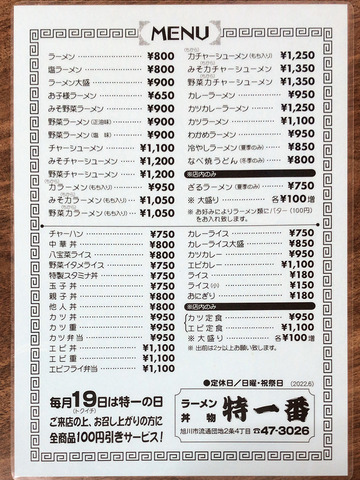 MENU
ラーメン ¥800
塩ラーメン ¥800
ラーメン大盛 ¥900
お子様ラーメン ¥650
みそ野菜ラーメン ¥900
野菜ラーメン(正油味) ¥900
野菜ラーメン(塩 味) ¥900
チャーシューメン ¥1,100
みそチャーシューメン ¥1,200
野菜チャーシューメン ¥1,200
力ラーメン(もち入り) ¥950
みそ力ラーメン(もち入り) ¥1,050
野菜力ラーメン(もち入り) ¥1,050
力チャーシューメン(もち入り) ¥1,250
みそ力チャーシューメン ¥1,350
野菜力チャーシューメン ¥1,350
カレーラーメン ¥950
カツカレーラーメン ¥1,250
カツラーメン ¥1,100
わかめラーメン ¥950
冷やしラーメン(夏季のみ) ¥850
なべ焼うどん(冬季のみ) ¥800
※店内のみ
ざるラーメン(夏季のみ) ¥750
※大盛り 各¥100増
※お好みによりラーメン類にバター(100円)
をお入れ致します。
チャーハン ¥750
中華丼 ¥800
八宝菜ライス ¥750
野菜イタメライス ¥750
特製スタミナ丼 ¥750
玉子丼 ¥750
親子丼 ¥800
他人丼 ¥800
カツ丼 ¥950
カツ重 ¥950
カツ弁当 ¥950
エビ丼 ¥1,100
エビ重 ¥1,100
エビフライ弁当 ¥1,100
カレーライス ¥750
カレーライス大盛 ¥850
カツカレー ¥950
エビカレー ¥1,100
ライス ¥180
ライス(小) ¥150
おにぎり ¥180
※店内のみ
カツ定食 ¥950
エビ定食 ¥1,100
※大盛り 各¥100増
※出前は2ヶ以上お願い致します。
●定休日/日曜・祝祭日 (2022.6)
毎月19日は特一の日
(トクイチ)
ご来店の上、お召し上がりの方に
全商品100円引きサービス!
ラーメン
丼物
特一番
旭川市流通団地2条4丁目 ☎47-3026